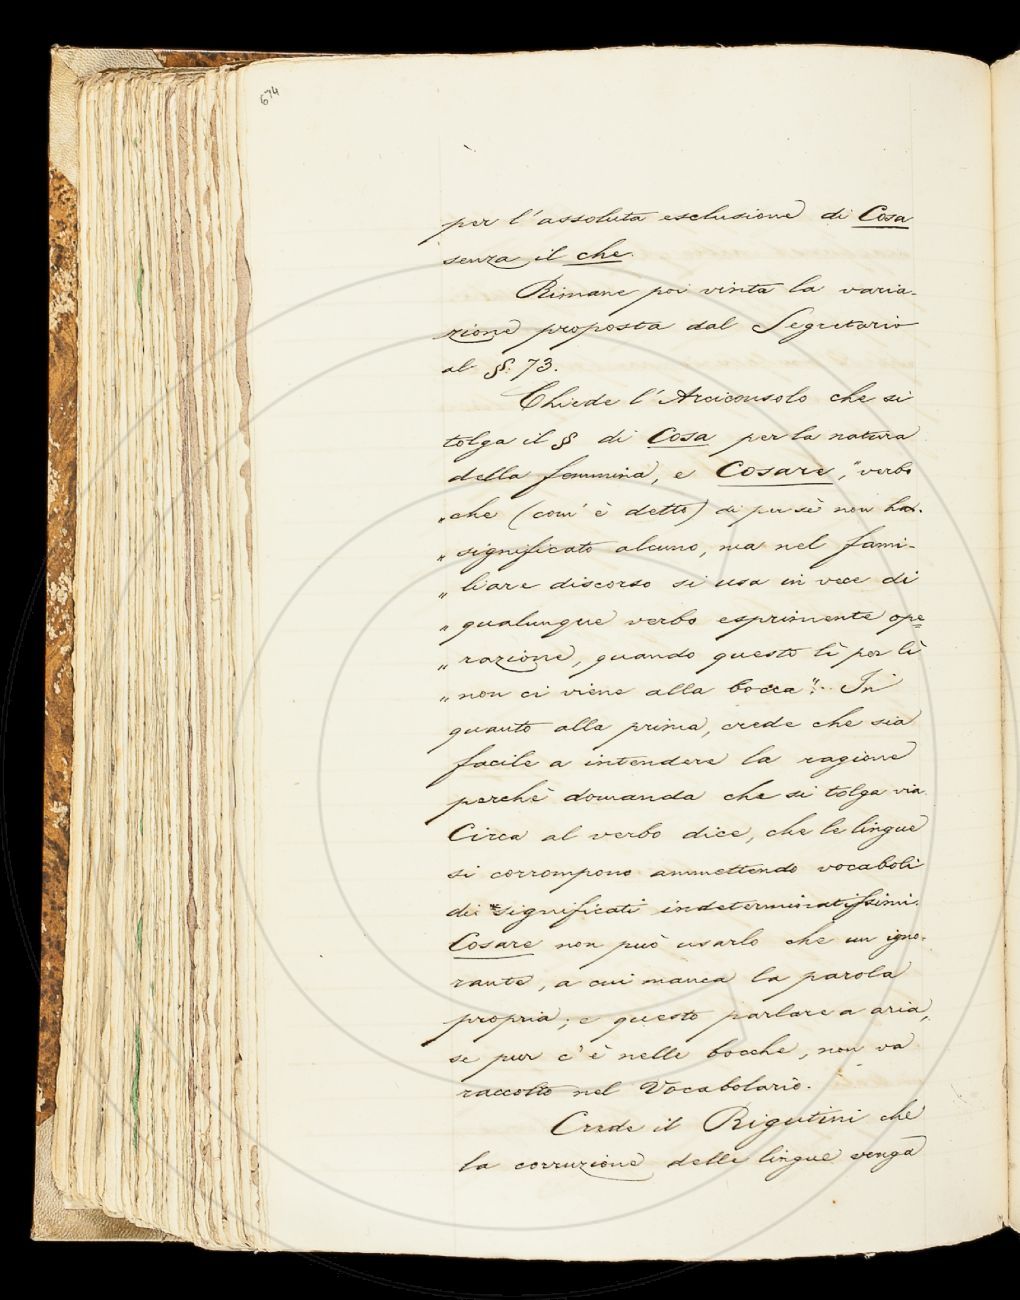 674
per l'assoluta esclusione di Cosa
senza il che.
Rimane poi vinta la varia-
zione proposta dal Segretario
al §. 73.
Chiede l'Arciconsolo che si
tolga il § di Cosa per la natura
della femmina, e Cosare, "verbo
"che (com' è detto) di per sè non ha
"significato alcuno, ma nel fami-
"liare discorso si usa in vece di
"qualunque verbo esprimente ope=
"razione, quando questo lì per lì
"non ci viene alla bocca". In
quanto alla prima, crede che sia
facile a intendere la ragione
perchè domanda che si tolga via.
Circa al verbo dice, che le lingue
si corrompono ammettendo vocaboli
di significati indeterminatissimi.
Cosare non può usarlo che un igno-
rante, a cui manca la parola
propria; e questo parlare a aria,
se pur c'è nelle bocche, non va
raccolto nel Vocabolario.
Crede il Rigutini che
la corruzione delle lingue venga